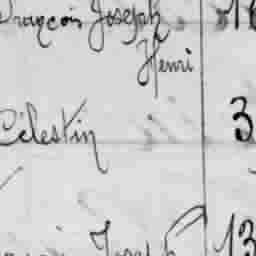 François Joseph
Henri
Célestin 3
Joseph 13